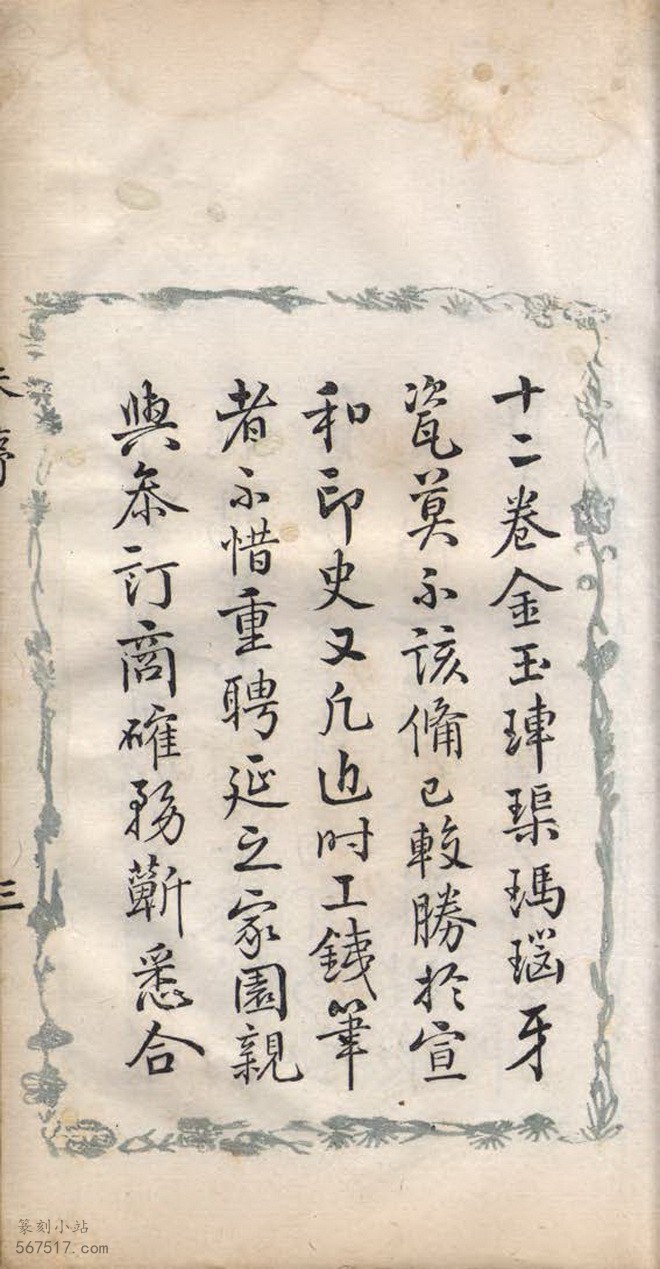 十二卷金玉琗璖瑪瑙牙
瓷莫不該俻已較勝於宣
和印史又凢近时工鐵筆
者不惜重聘延之家園親
與叅訂商確務蘄悉合
序
三
篆刻小站
567517.com